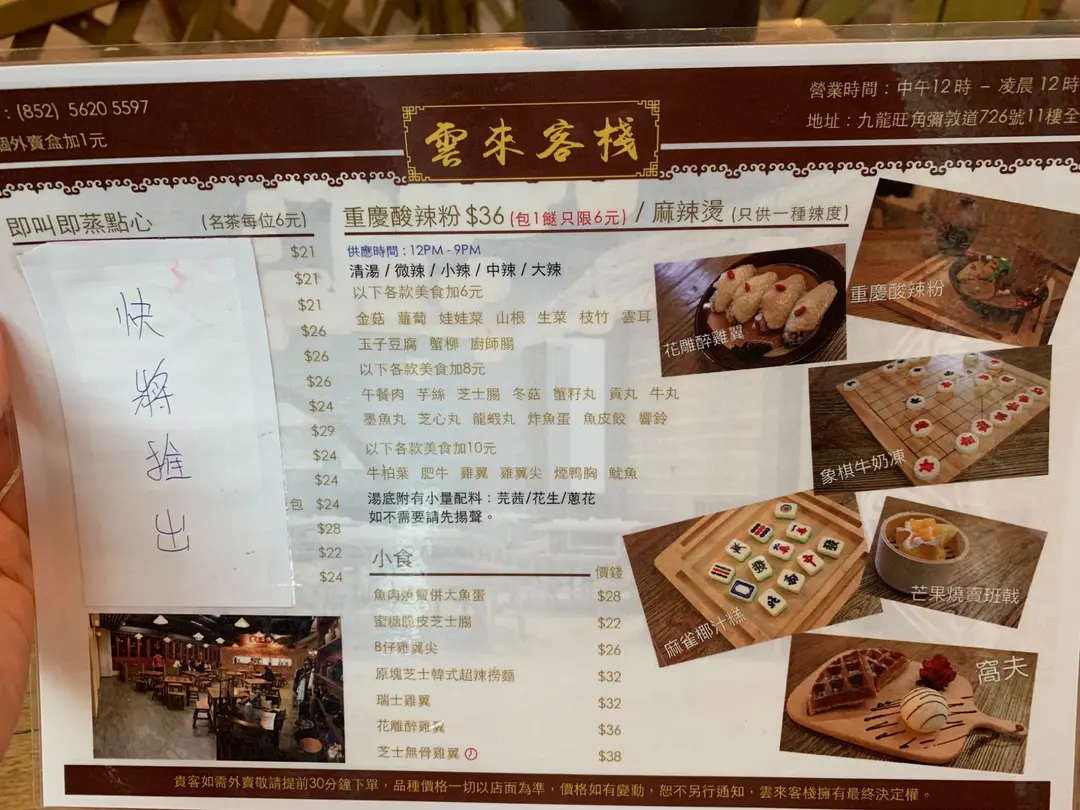 : (852) 5620 5597
個外賣盒加1元
雲來客棧
營業時間：中午12時 – 凌晨 12時
地址：九龍旺角彌敦道726號11樓全
即叫即蒸點心 (名茶每位6元)
$21
$21
$21
$26
$26
$26
$24
$29
$24
$24
包 $24
$28
$22
$24
快
將
推
出
重慶酸辣粉 $36 (包1餸只限6元) / 麻辣燙 (只供一種辣度)
供應時間：12PM - 9PM
清湯 / 微辣 / 小辣 / 中辣 / 大辣
以下各款美食加6元
金菇 蘿蔔 娃娃菜 山根 生菜 枝竹 雲耳
玉子豆腐 蟹柳 廚師腸
以下各款美食加8元
午餐肉 芋絲 芝士腸 冬菇 蟹籽丸 貢丸 牛丸
墨魚丸 芝心丸 龍蝦丸 炸魚蛋 魚皮餃 響鈴
以下各款美食加10元
牛柏葉 肥牛 雞翼 雞翼尖 煙鴨胸 魷魚
湯底附有小量配料：芫茜/花生/蔥花
如不需要請先揚聲。
小食 價錢
魚肉燒賣併大魚蛋 $28
蜜糖脆皮芝士腸 $22
B仔雞翼尖 $26
原塊芝士韓式超辣撈麵 $32
瑞士雞翼 $32
花雕醉雞翼 $36
芝士無骨雞翼 $38
花雕醉雞翼
重慶酸辣粉
象棋牛奶凍
麻雀椰汁糕
芒果燒賣班戟
窩夫
貴客如需外賣敬請提前30分鐘下單，品種價格一切以店面為準，價格如有變動，恕不另行通知，雲來客棧擁有最終決定權。